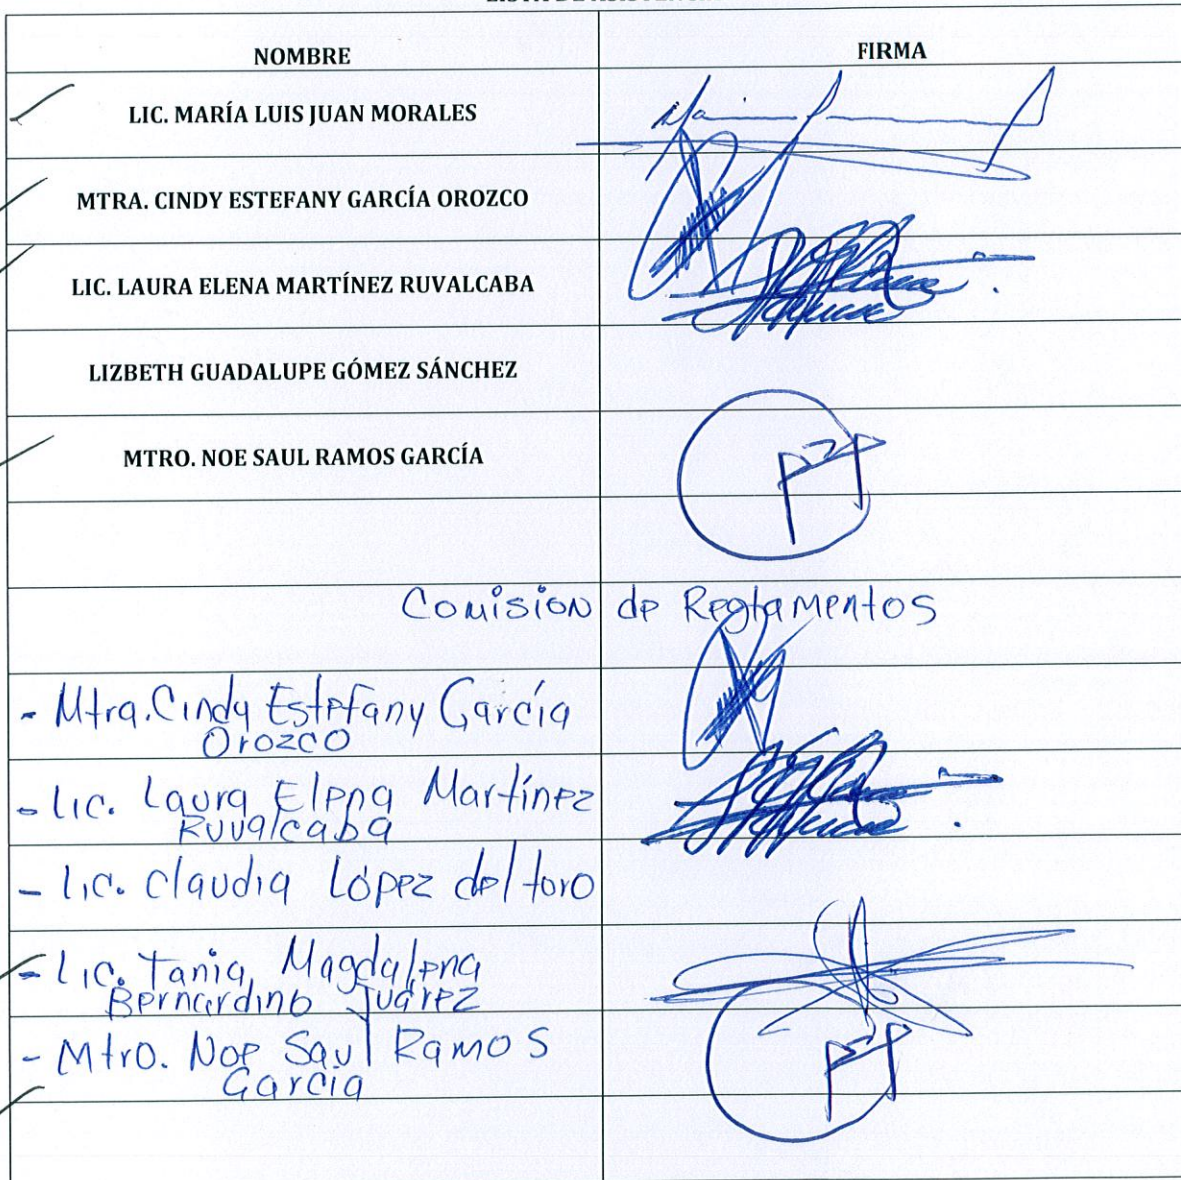 NOMBRE
FIRMA
LIC. MARÍA LUIS JUAN MORALES
MTRA. CINDY ESTEFANY GARCÍA OROZCO
LIC. LAURA ELENA MARTÍNEZ RUVALCABA
LIZBETH GUADALUPE GÓMEZ SÁNCHEZ
MTRO. NOE SAUL RAMOS GARCÍA
Comisión de Reglamentos
- Mtra. Cindy Estefany García
Orozco
- Lic. Laura Elena Martínez
Ruvalcaba
- Lic. Claudia López del toro
- Lic. Tania Magdalena
Bernardino Juárez
- Mtro. Noe Saul Ramos
García